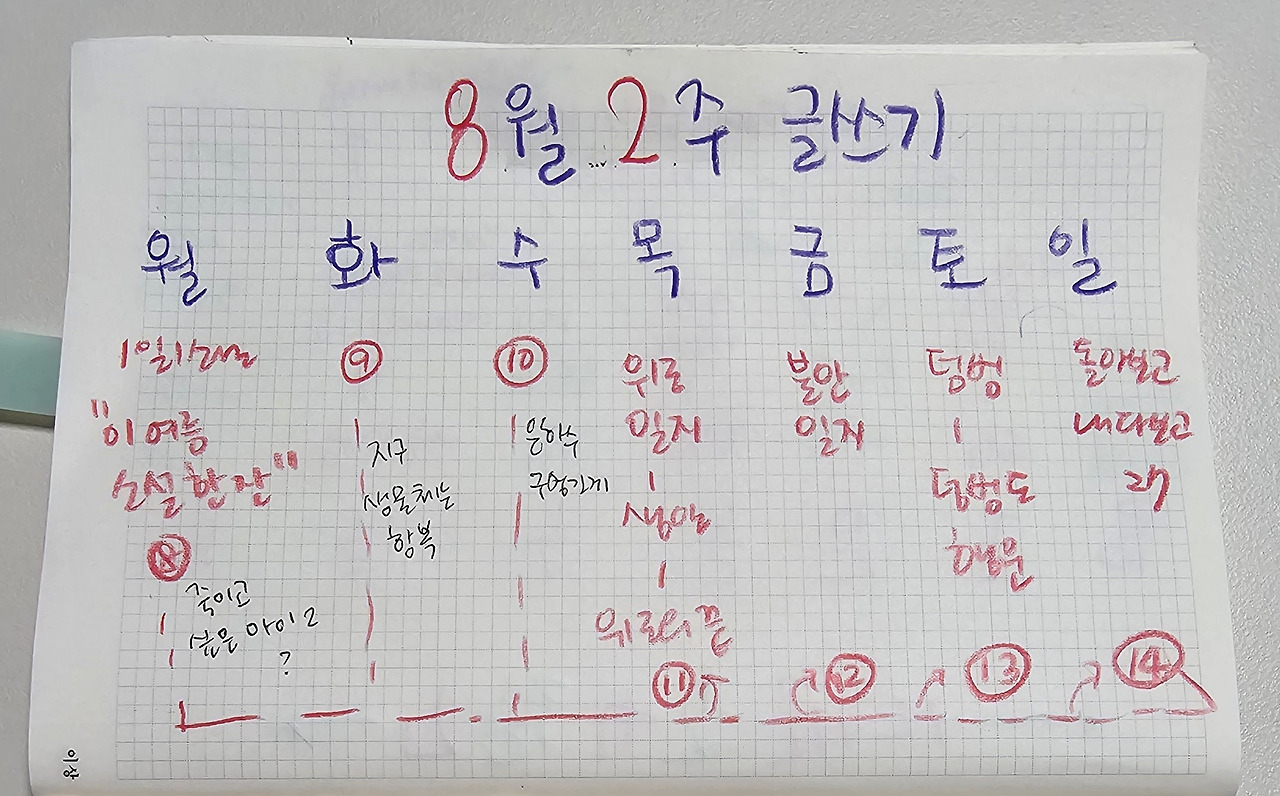 8월 2주 글쓰기
월 화 수 목 금 토 일
1일1소설
"이 여름
소설 한 잔"
⑧
죽이고
싶은 아이 2
?
⑨
지구
생물체는
항복
⑩
은하수
구멍가게
위로
일지
생일
위로의 끝
⑪
불안
일지
⑫
텀벙
텀벙도
행운
⑬
돌아보고
내다보고
27
⑭
이상